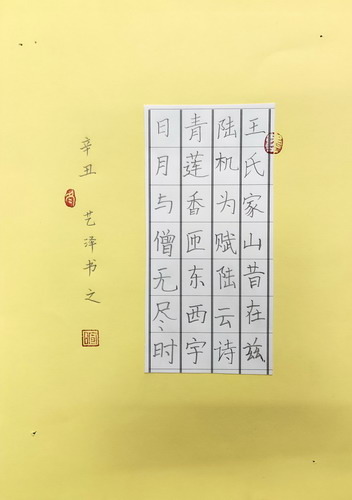 王氏家山昔在兹
陆机为赋陆云诗
青莲香匝东西宇
日月与僧无尽时
辛丑 艺泽书之